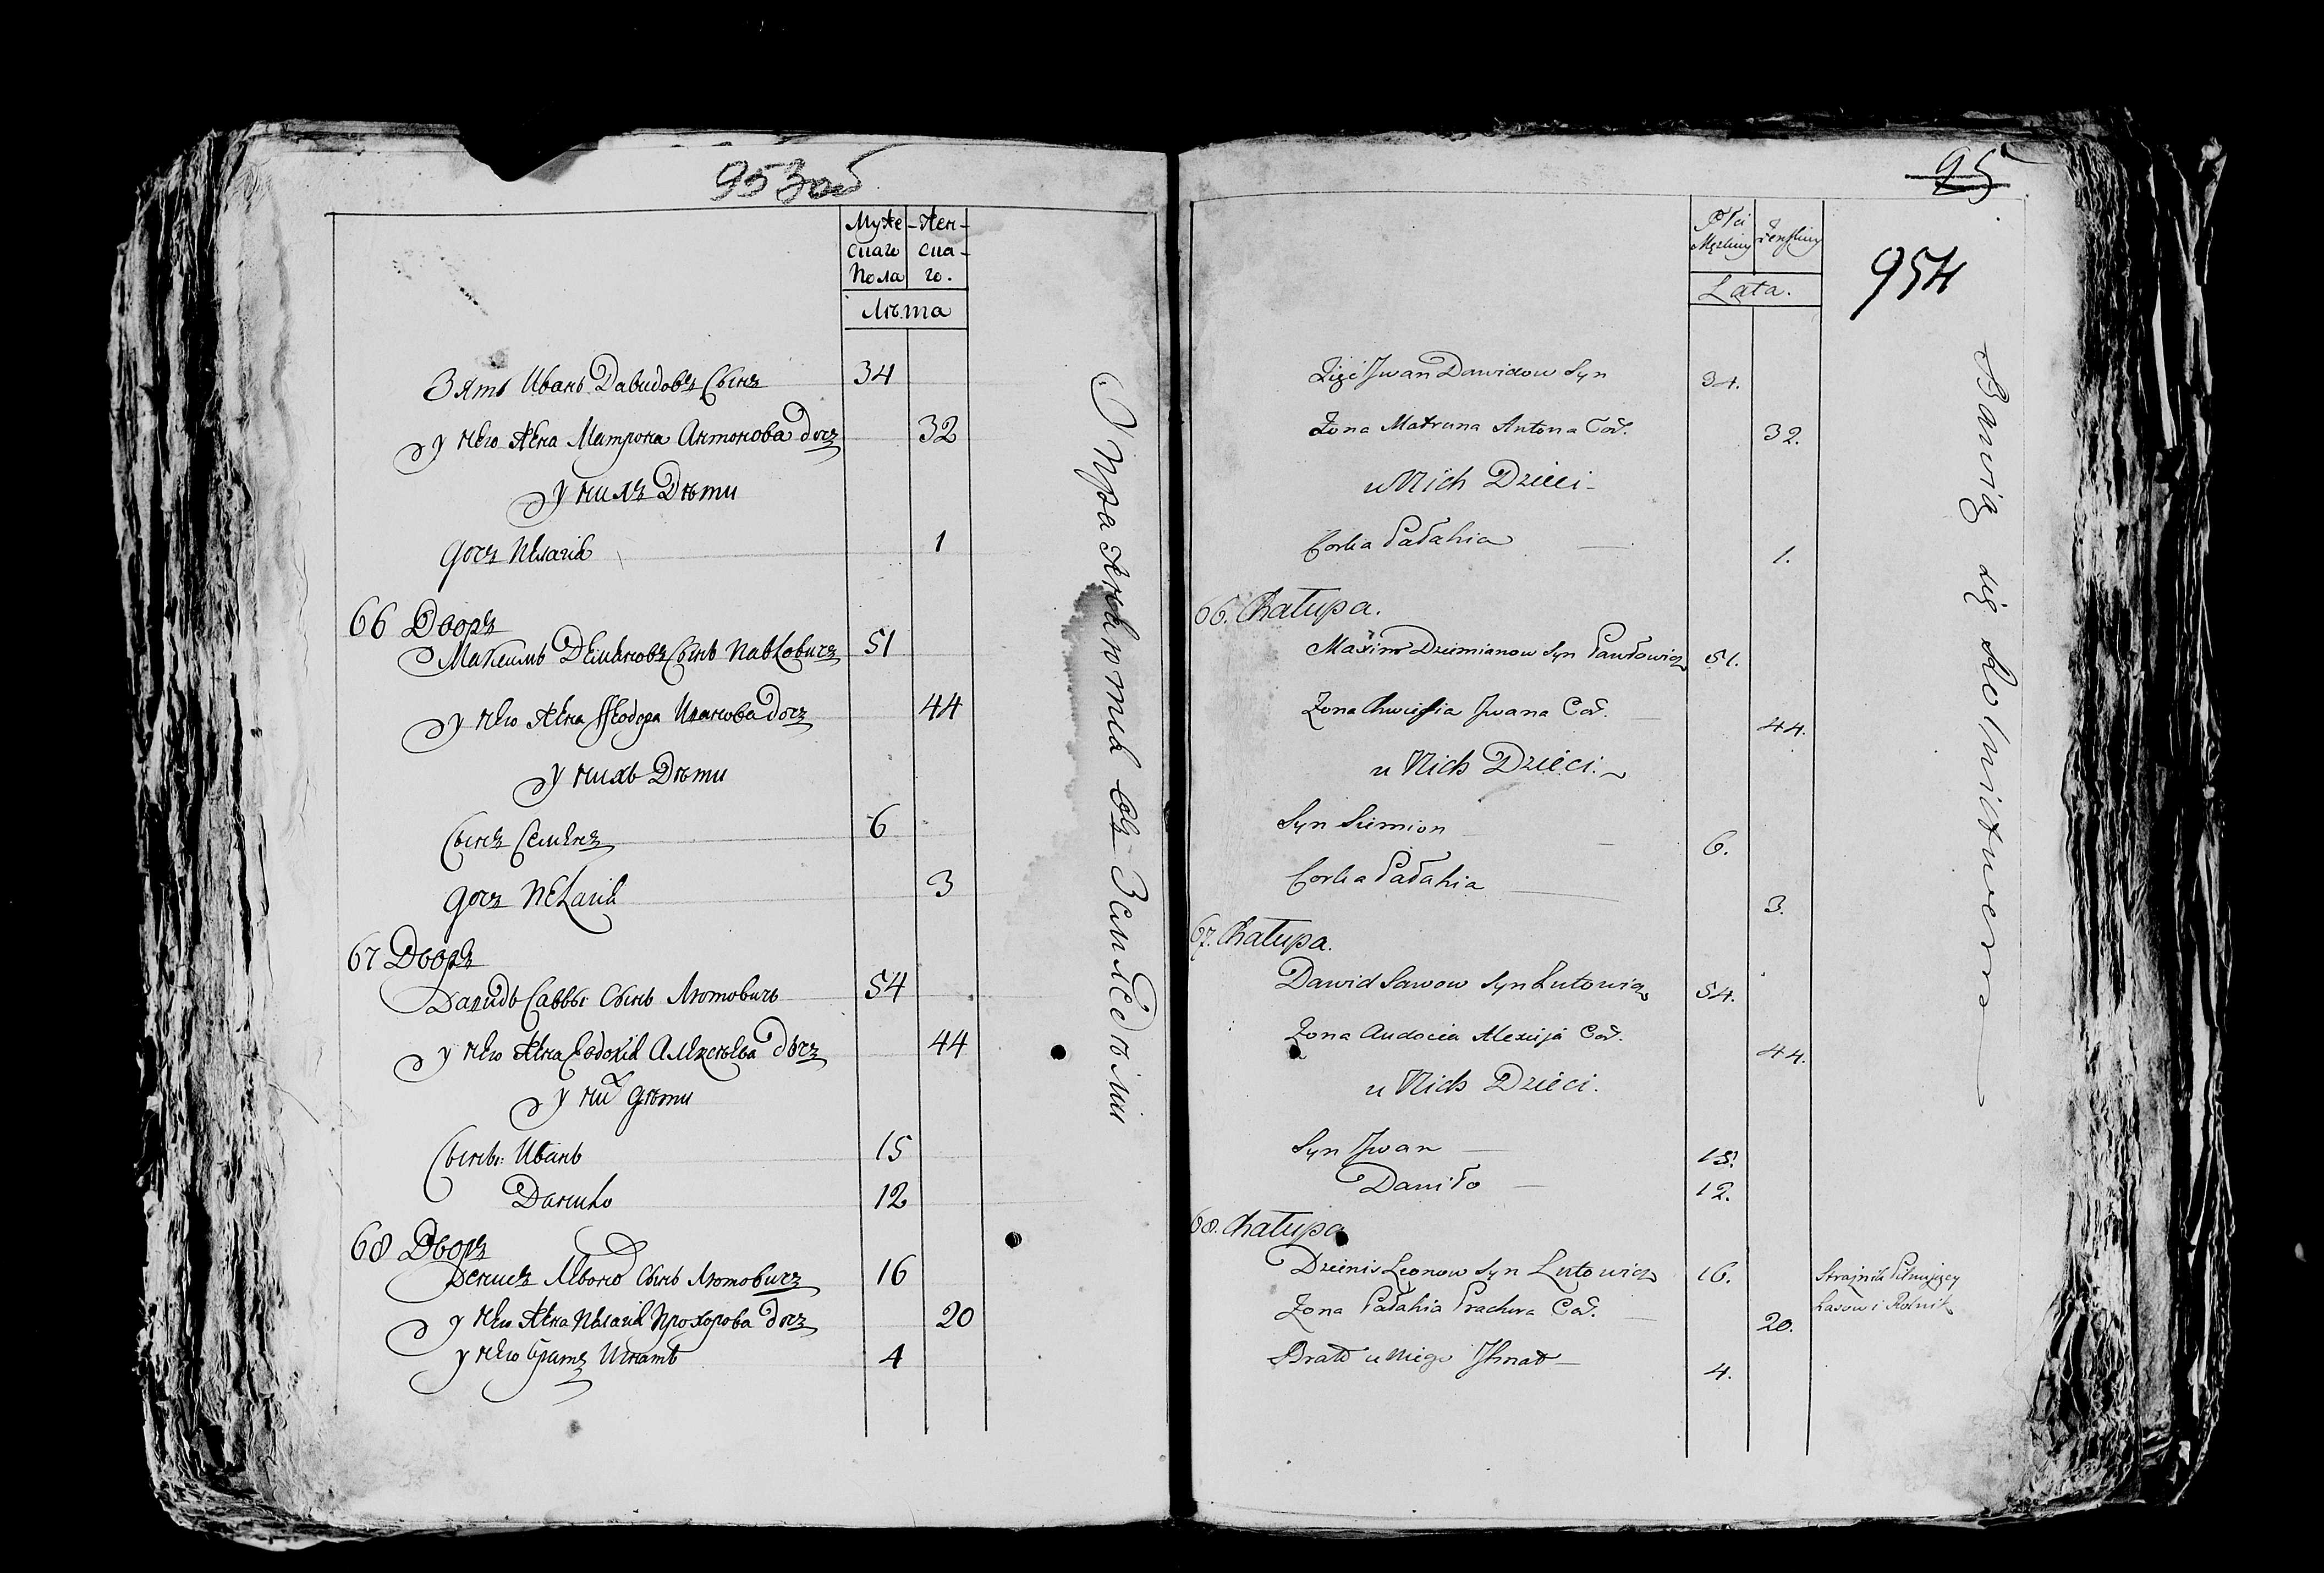 953об
Муже-
скаго
Пола
Жен-
ска-
го.
Лѣта
Зять Иванъ Давидовъ Сынъ 34
у него жена Матрона Антонова дочь 32
у нихъ Дѣти
дочь Пелагія 1
66 Дворъ
Максимъ Деміановъ Сынъ Павловичъ 51
у него жена Ѳеодора Иванова дочь 44
у нихъ Дѣти
Сынъ Семенъ 6
дочь Пелагія 3
67 Дворъ
Давидъ Саввы Сынъ Лютовичъ 54
у него жена Евдокія Алексѣева дочь 44
у них дѣти
Сыны: Иванъ 15
Данило 12
68 Дворъ
Денисъ Левоновъ Сынъ Лютовичъ 16
у него жена Пелагія Прохорова дочь 20
у него братъ Игнатъ 4
Упражняются въ Земледѣліи
95
954
Płci
Męskiey
Żeńskiey
Lata.
Zięć Jwan Dawidow Syn 34.
Żona Matruna Antona Cór. 32.
u Nich Dzieci
Corka Pałahia 1.
66. Chałupa.
Maxim Dziemianow Syn Pawłowicz 51.
Żona Chwiesia Jwana Cor. 44.
u Nich Dzieci.
Syn Siemion 6.
Corka Pałahia 3.
67. Chałupa.
Dawid Sawow Syn Lutowicz 54.
Żona Audocia Alexieja Cor. 44.
u Nich Dzieci.
Syn Jwan 15.
Daniło 12.
68. Chałupa
Dzienis Leonow Syn Lutowicz 16. Strażnik Pilnujący
Lasow i Rolnik
Żona Pałahia Prachora Cor. 20.
Brat u Niego Jhnat 4.
Bawią się Rolnictwem